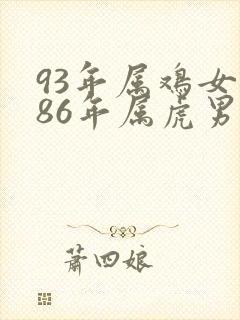 93年属鸡女
86年属虎男
萧四娘